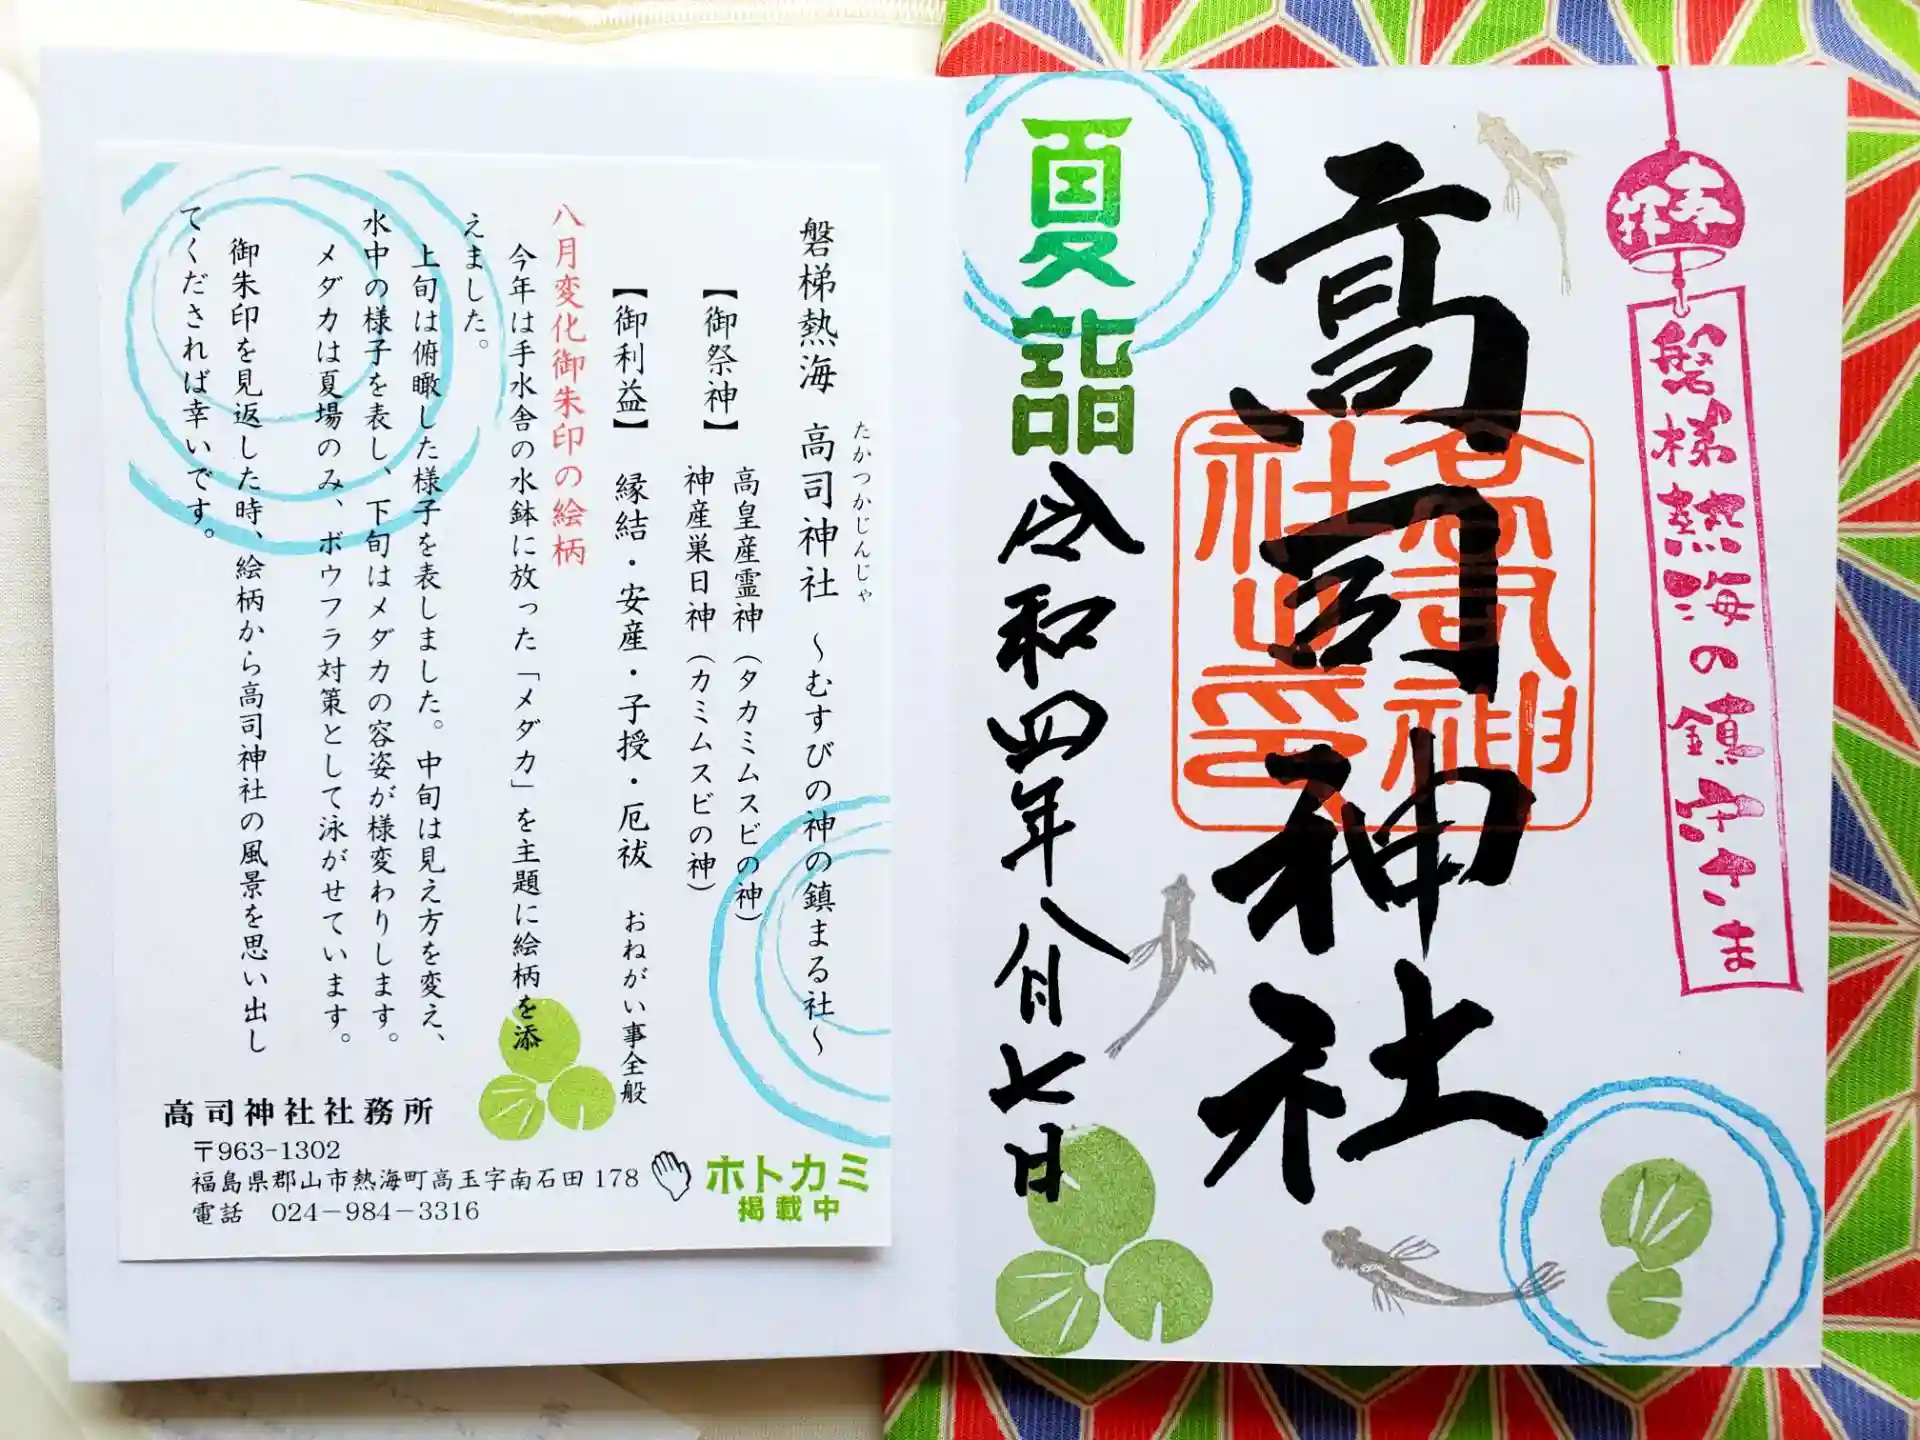 奉拝
磐梯熱海の鎮守さま
高司神社
高司神社之印
夏詣
令和四年八月七日
磐梯熱海 高司神社 ～むすびの神の鎮まる社～
たかつかじんじゃ
【御祭神】 高皇産霊神(タカミムスビの神)
神産巣日神(カミムスビの神)
【御利益】 縁結・安産・子授・厄祓 おねがい事全般
八月変化御朱印の絵柄
今年は手水舎の水鉢に放った「メダカ」を主題に絵柄を添
えました。
上旬は俯瞰した様子を表しました。中旬は見え方を変え、
水中の様子を表し、下旬はメダカの容姿が様変わりします。
メダカは夏場のみ、ボウフラ対策として泳がせています。
御朱印を見返した時、絵柄から高司神社の風景を思い出し
てくだされば幸いです。
高司神社社務所
〒963-1302
福島県郡山市熱海町高玉字南石田 178
電話 024-984-3316
ホトカミ
掲載中